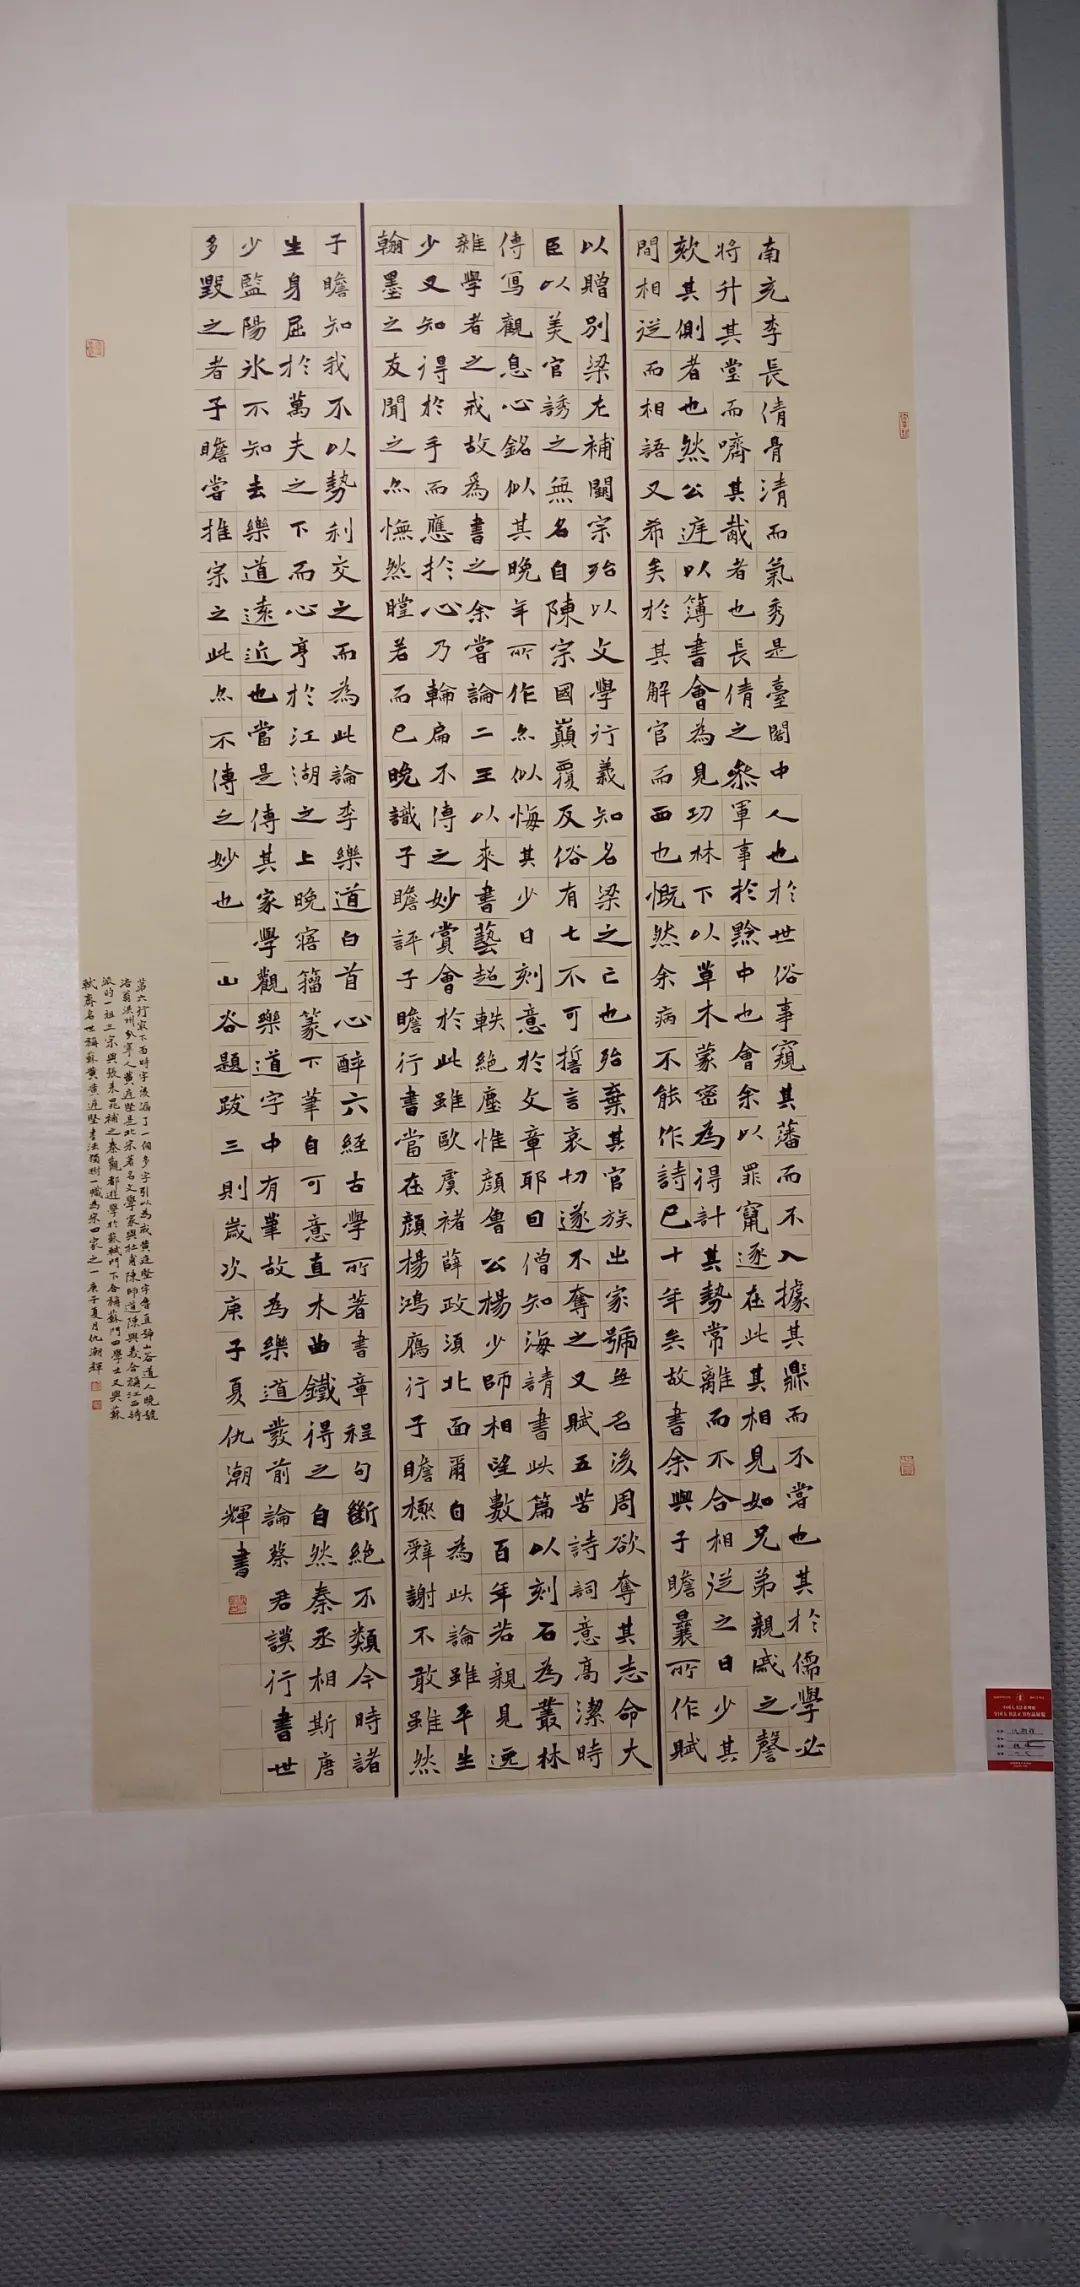 南充李長倩骨清而氣秀是臺閣中人也於世俗事窺其藩而不入據其鼎而不嘗也其於儒學必
將升其堂而嚌其胾者也長倩之參軍事於黔中也會余以罪竄逐在此其相見如兄弟親戚之謦
欬其側者也然公庭以簿書會為見功林下以草木蒙密為得計其勢常離而不合相從之日少其
間相從而相語又希矣於其解官而西也慨然余病不能作詩已十年矣故書余與子瞻曩所作賦
以贈別梁左補闕宗殆以文學行義知名梁之亡也殆棄其官族出家號無名後周欲奪其志命大
臣以美官誘之無名自陳宗國巔覆反俗有七不可誓言哀切遂不奪之又賦五苦詩詞意高潔時
傳寫觀息心銘似其晚年所作亦似悔其少日刻意於文章耶曰僧知海請書此篇以刻石為叢林
雜學者之戒故為書之余嘗論二王以來書藝超軼絕塵惟顏魯公楊少師相望數百年若親見逸
少又知得於手而應於心乃輪扁不傳之妙賞會於此雖歐虞褚薛政須北面爾自為此論雖平生
翰墨之友聞之亦憮然瞠若而已晚識子瞻評子瞻行書當在顏楊鴻雁行子瞻極辭謝不敢雖然
子瞻知我不以勢利交之而為此論李樂道白首心醉六經古學所著書章程句斷絕不類今時諸
生身屈於萬夫之下而心亨於江湖之上晚寤籀篆下筆自可意直木曲鐵得之自然秦丞相斯唐
少監陽冰不知去樂道遠近也當是傳其家學觀樂道字中有筆故為樂道發前論蔡君謨行書世
多毀之者子瞻嘗推宗之此亦不傳之妙也 山谷題跋三則歲次庚子夏仇潮輝書
第六行最下面時字後漏了一個多字引以為戒黃庭堅字魯直號山谷道人晚號
涪翁洪州分寧人黃庭堅是北宋著名文學家與杜甫陳師道陳與義合稱江西詩
派的一祖三宗與張耒晁補之秦觀都遊學於蘇軾門下合稱蘇門四學士又與蘇
軾齊名世稱蘇黃黃庭堅書法獨樹一幟為宋四家之一庚子夏月仇潮輝